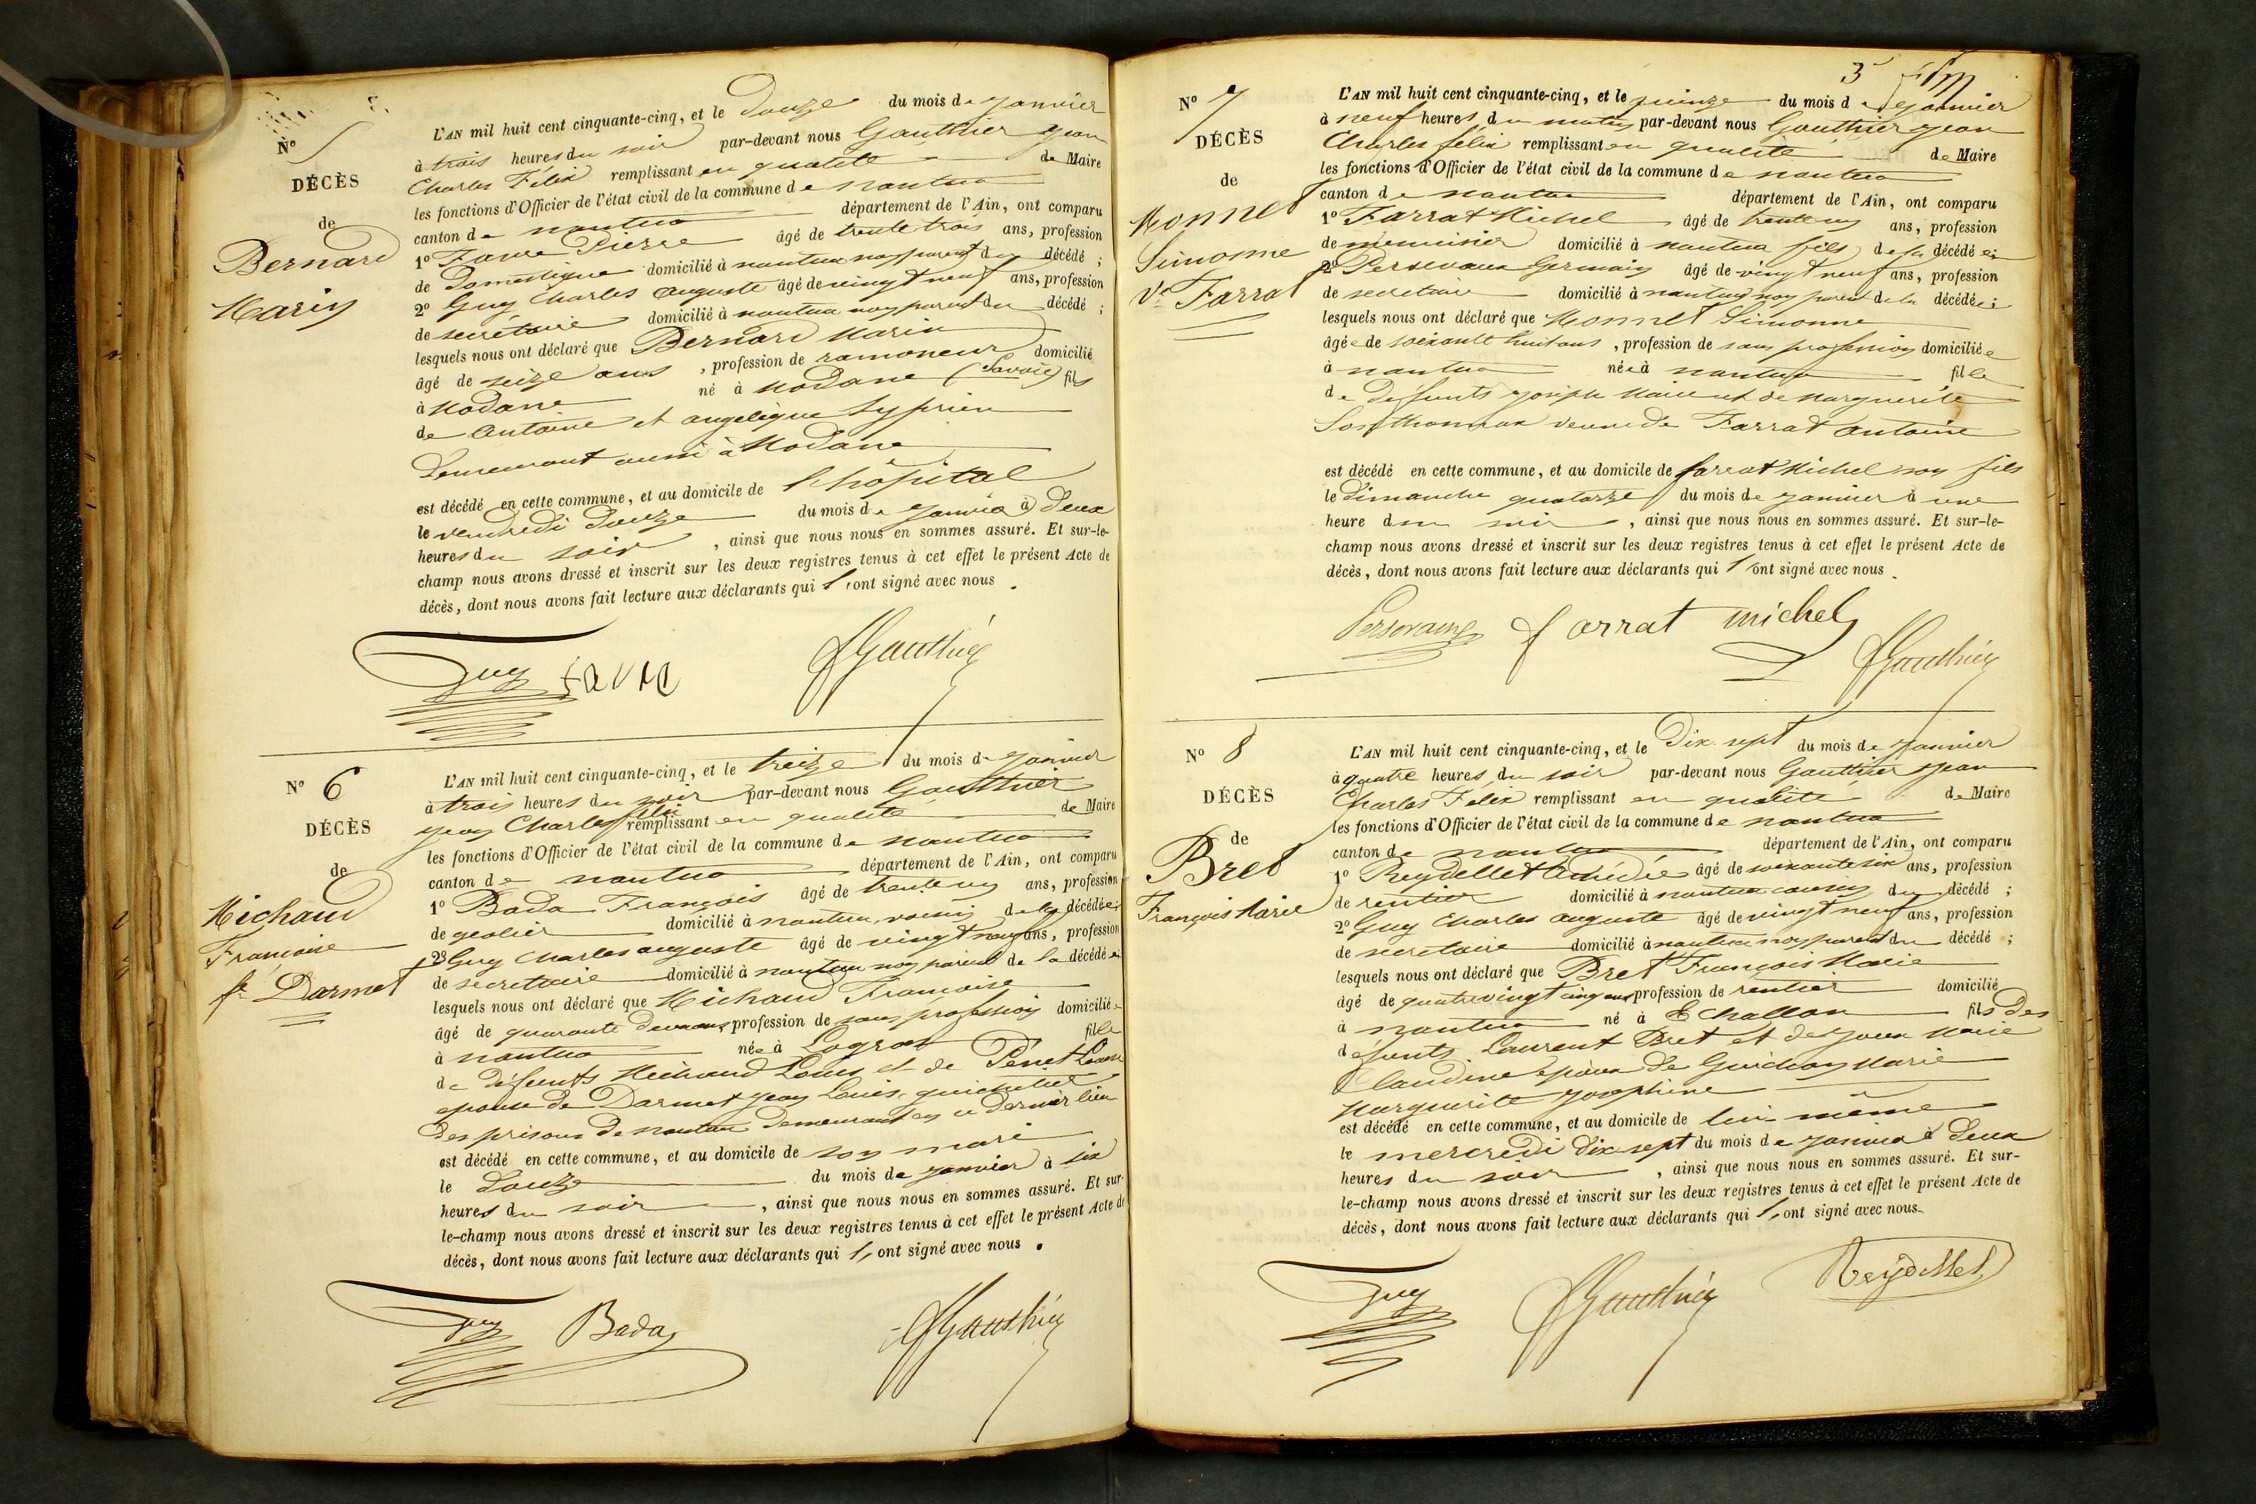 N° 5
DÉCÈS
de
Bernard
Marin
L'AN mil huit cent cinquante-cinq, et le Douze du mois de Janvier
à trois heures du soir par-devant nous Gauthier Jean
Charles Félix remplissant en qualité de Maire
les fonctions d'Officier de l'état civil de la commune de nantua
canton de nantua département de l'Ain, ont comparu
1° Favre Pierre âgé de trente trois ans, profession
de Domestique domicilié à nantua non parent du décédé ;
2° Guy Charles auguste âgé de vingt neuf ans, profession
de secrétaire domicilié à nantua non parent du décédé ;
lesquels nous ont déclaré que Bernard Marin
âgé de seize ans , profession de ramoneur domicilié
à Modane né à Modane (Savoie) fils
de Antoine et angélique
demeurant aussi à Modane
est décédé en cette commune, et au domicile de l'hôpital
le vendredi douze du mois de Janvier à deux
heures du soir , ainsi que nous nous en sommes assuré. Et sur-le-
champ nous avons dressé et inscrit sur les deux registres tenus à cet effet le présent Acte de
décès, dont nous avons fait lecture aux déclarants qui l'ont signé avec nous .
Guy favre Gauthier
N° 6
DÉCÈS
de
Michaud
Françoise
fe Darmet
L'AN mil huit cent cinquante-cinq, et le treize du mois de Janvier
à trois heures du soir par-devant nous Gauthier
Jean Charles félix remplissant en qualité de Maire
les fonctions d'Officier de l'état civil de la commune de nantua
canton de nantua département de l'Ain, ont comparu
1° Bada François âgé de trente un ans, profession
de geolier domicilié à nantua voisin de la décédée ;
2° Guy Charles auguste âgé de vingt neuf ans, profession
de secrétaire domicilié à nantua non parent de la décédée
lesquels nous ont déclaré que Michaud Françoise
âgé de quarante deux ans, profession de sans profession domiciliée
à nantua née à Lograt fille
de défunts Michaud Louis et de Penet
épouse de Darmet Jean Louis, guichetier
des prisons de nantua demeurant en ce dernier lieu
est décédé en cette commune, et au domicile de son mari
le douze du mois de janvier à six
heures du soir , ainsi que nous nous en sommes assuré. Et sur-
le-champ nous avons dressé et inscrit sur les deux registres tenus à cet effet le présent Acte de
décès, dont nous avons fait lecture aux déclarants qui l'ont signé avec nous .
Guy Bada Gauthier
3
N° 7
DÉCÈS
de
Monnet
Simonne
Ve Farrat
L'AN mil huit cent cinquante-cinq, et le quinze du mois de Janvier
à neuf heures du matin par-devant nous Gauthier Jean
Charles félix remplissant en qualité de Maire
les fonctions d'Officier de l'état civil de la commune de nantua
canton de nantua département de l'Ain, ont comparu
1° Farrat Michel âgé de trente un ans, profession
de menuisier domicilié à nantua fils de la décédée ;
2° Persevaux Germain âgé de vingt neuf ans, profession
de secretaire domicilié à nantua non parent de la décédée ;
lesquels nous ont déclaré que Monnet Simonne
âgée de soixante huit ans , profession de sans profession domiciliée
à nantua née à nantua fille
de défunts Joseph Marie et de Marguerite
Sonthonnax veuve de Farrat antoine
est décédé en cette commune, et au domicile de farrat Michel son fils
le Dimanche quatorze du mois de janvier à une
heure du soir , ainsi que nous nous en sommes assuré. Et sur-le-
champ nous avons dressé et inscrit sur les deux registres tenus à cet effet le présent Acte de
décès, dont nous avons fait lecture aux déclarants qui l'ont signé avec nous .
farrat michel Gauthier
N° 8
DÉCÈS
de
Bret
François Marie
L'AN mil huit cent cinquante-cinq, et le Dix sept du mois de Janvier
à quatre heures du soir par-devant nous Gauthier Jean
Charles Félix remplissant en qualité de Maire
les fonctions d'Officier de l'état civil de la commune de nantua
canton de nantua département de l'Ain, ont comparu
1° Reydellet Amédée âgé de soixante six ans, profession
de rentier domicilié à nantua cousin du décédé ;
2° Guy Charles auguste âgé de vingt neuf ans, profession
de secretaire domicilié à nantua non parent du décédé ;
lesquels nous ont déclaré que Bret François Marie
âgé de quatre vingt cinq ans profession de rentier domicilié
à nantua né à Echallon fils des
défunts Laurent Bret et de Marie
Claudine époux de Guichon Marie
Marguerite Joséphine
est décédé en cette commune, et au domicile de lui même
le mercredi dix sept du mois de janvier à deux
heures du soir , ainsi que nous nous en sommes assuré. Et sur-
le-champ nous avons dressé et inscrit sur les deux registres tenus à cet effet le présent Acte de
décès, dont nous avons fait lecture aux déclarants qui l'ont signé avec nous.
Guy Gauthier Reydellet